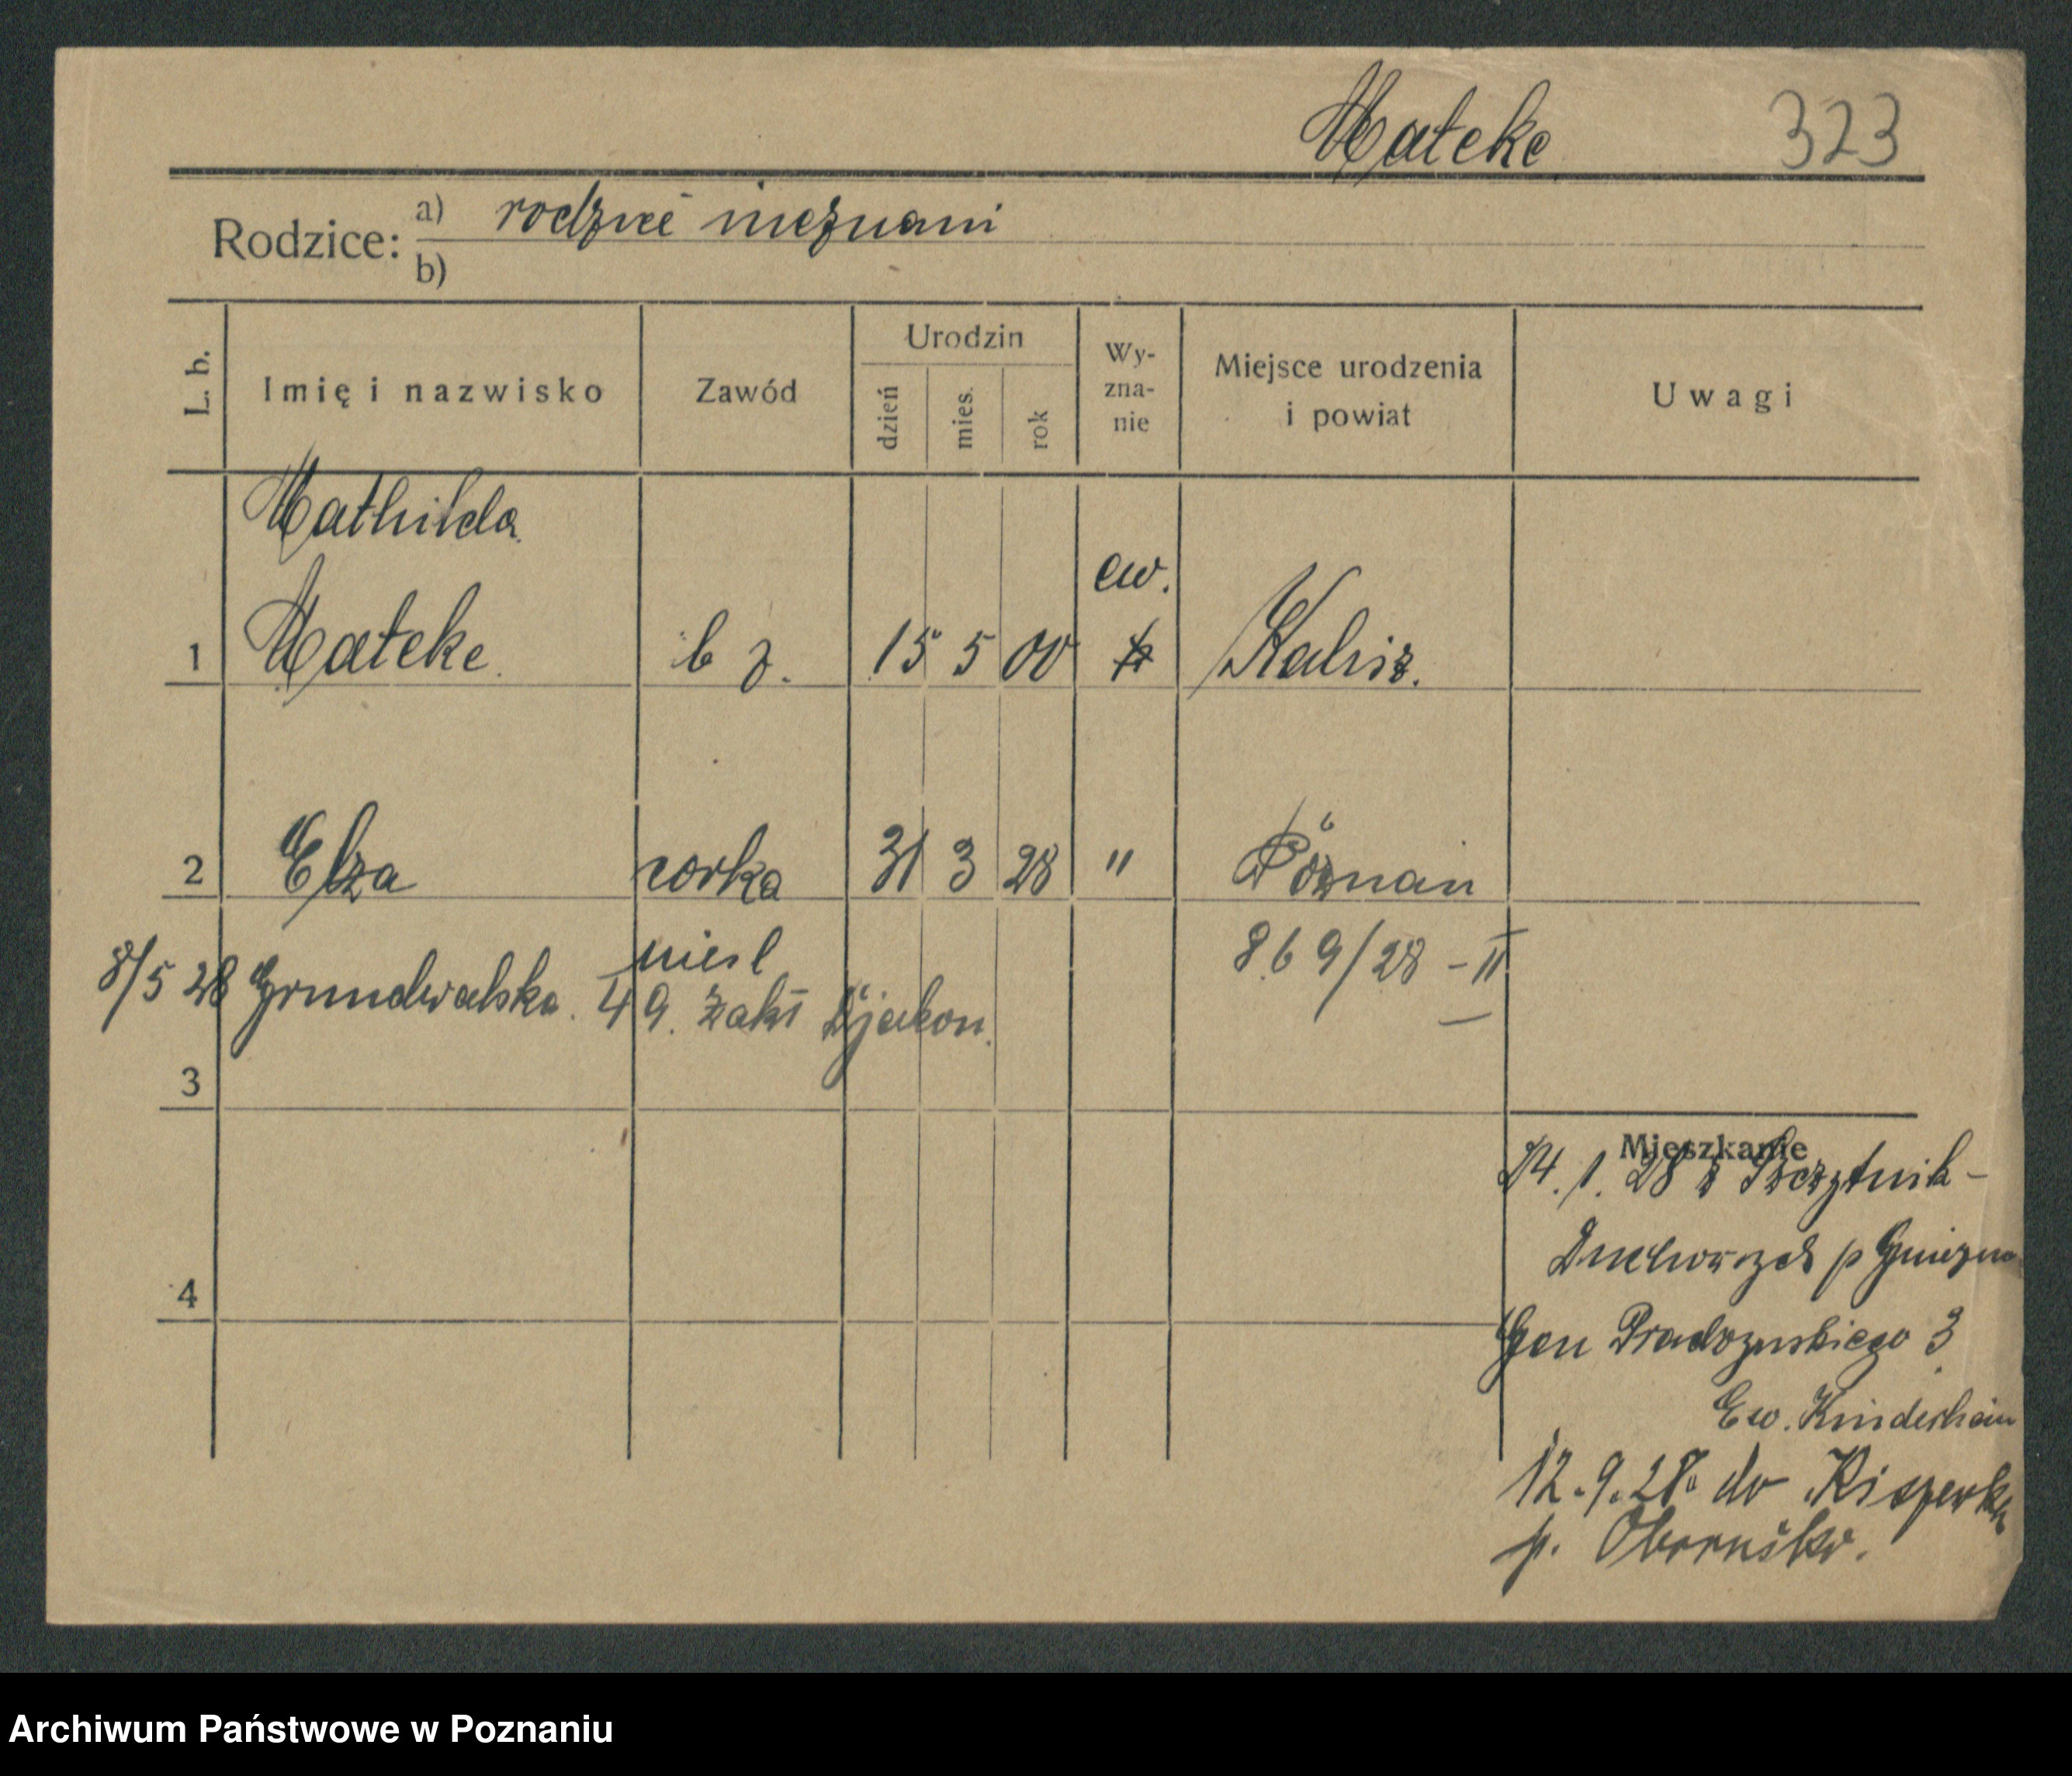 Mateke 323
Rodzice: a) rodzice nieznani
b)
L. b. Imię i nazwisko Zawód Urodzin dzień mies. rok Wy-zna-nie Miejsce urodzenia i powiat Uwagi
Mathilda
ew.
1 Mateke. b z. 15 5 00 Kalisz.
2 Elza corka 31 3 28 " Poznań
niesl 869/28 - II
8/5 28 Grundwalska. 49. Zakł Djakon.
3
Mieszkanie
24. 1. 28 z Szczytnik -
Duchowych p Gniezno
Gen Prądzyńskiego 3
Ew. Kinderheim
4
12.9.28 do
p.
Archiwum Państwowe w Poznaniu